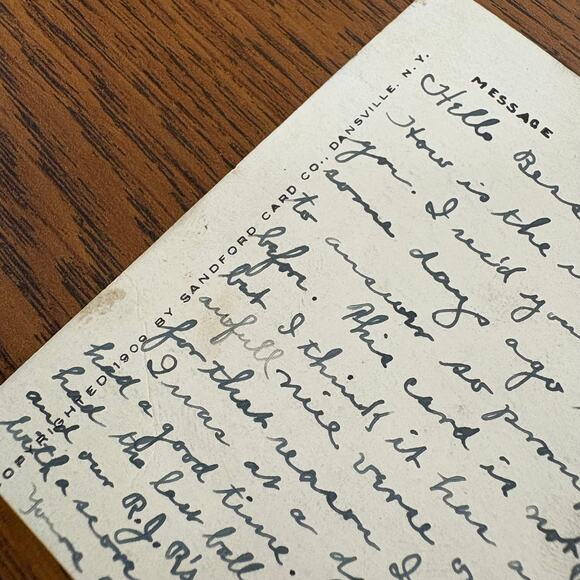 MESSAGE
COPYRIGHTED 1909 BY SANDFORD CARD CO., DANSVILLE, N.Y.
Hello
How is the
you. I rec'd you
some days ago
to answer so prom
befor. This card is not
but I think it has a
awfull nice verse
for that reason I
I was at a
had a good time.
had the last ball
and our R.J.R's
with a score